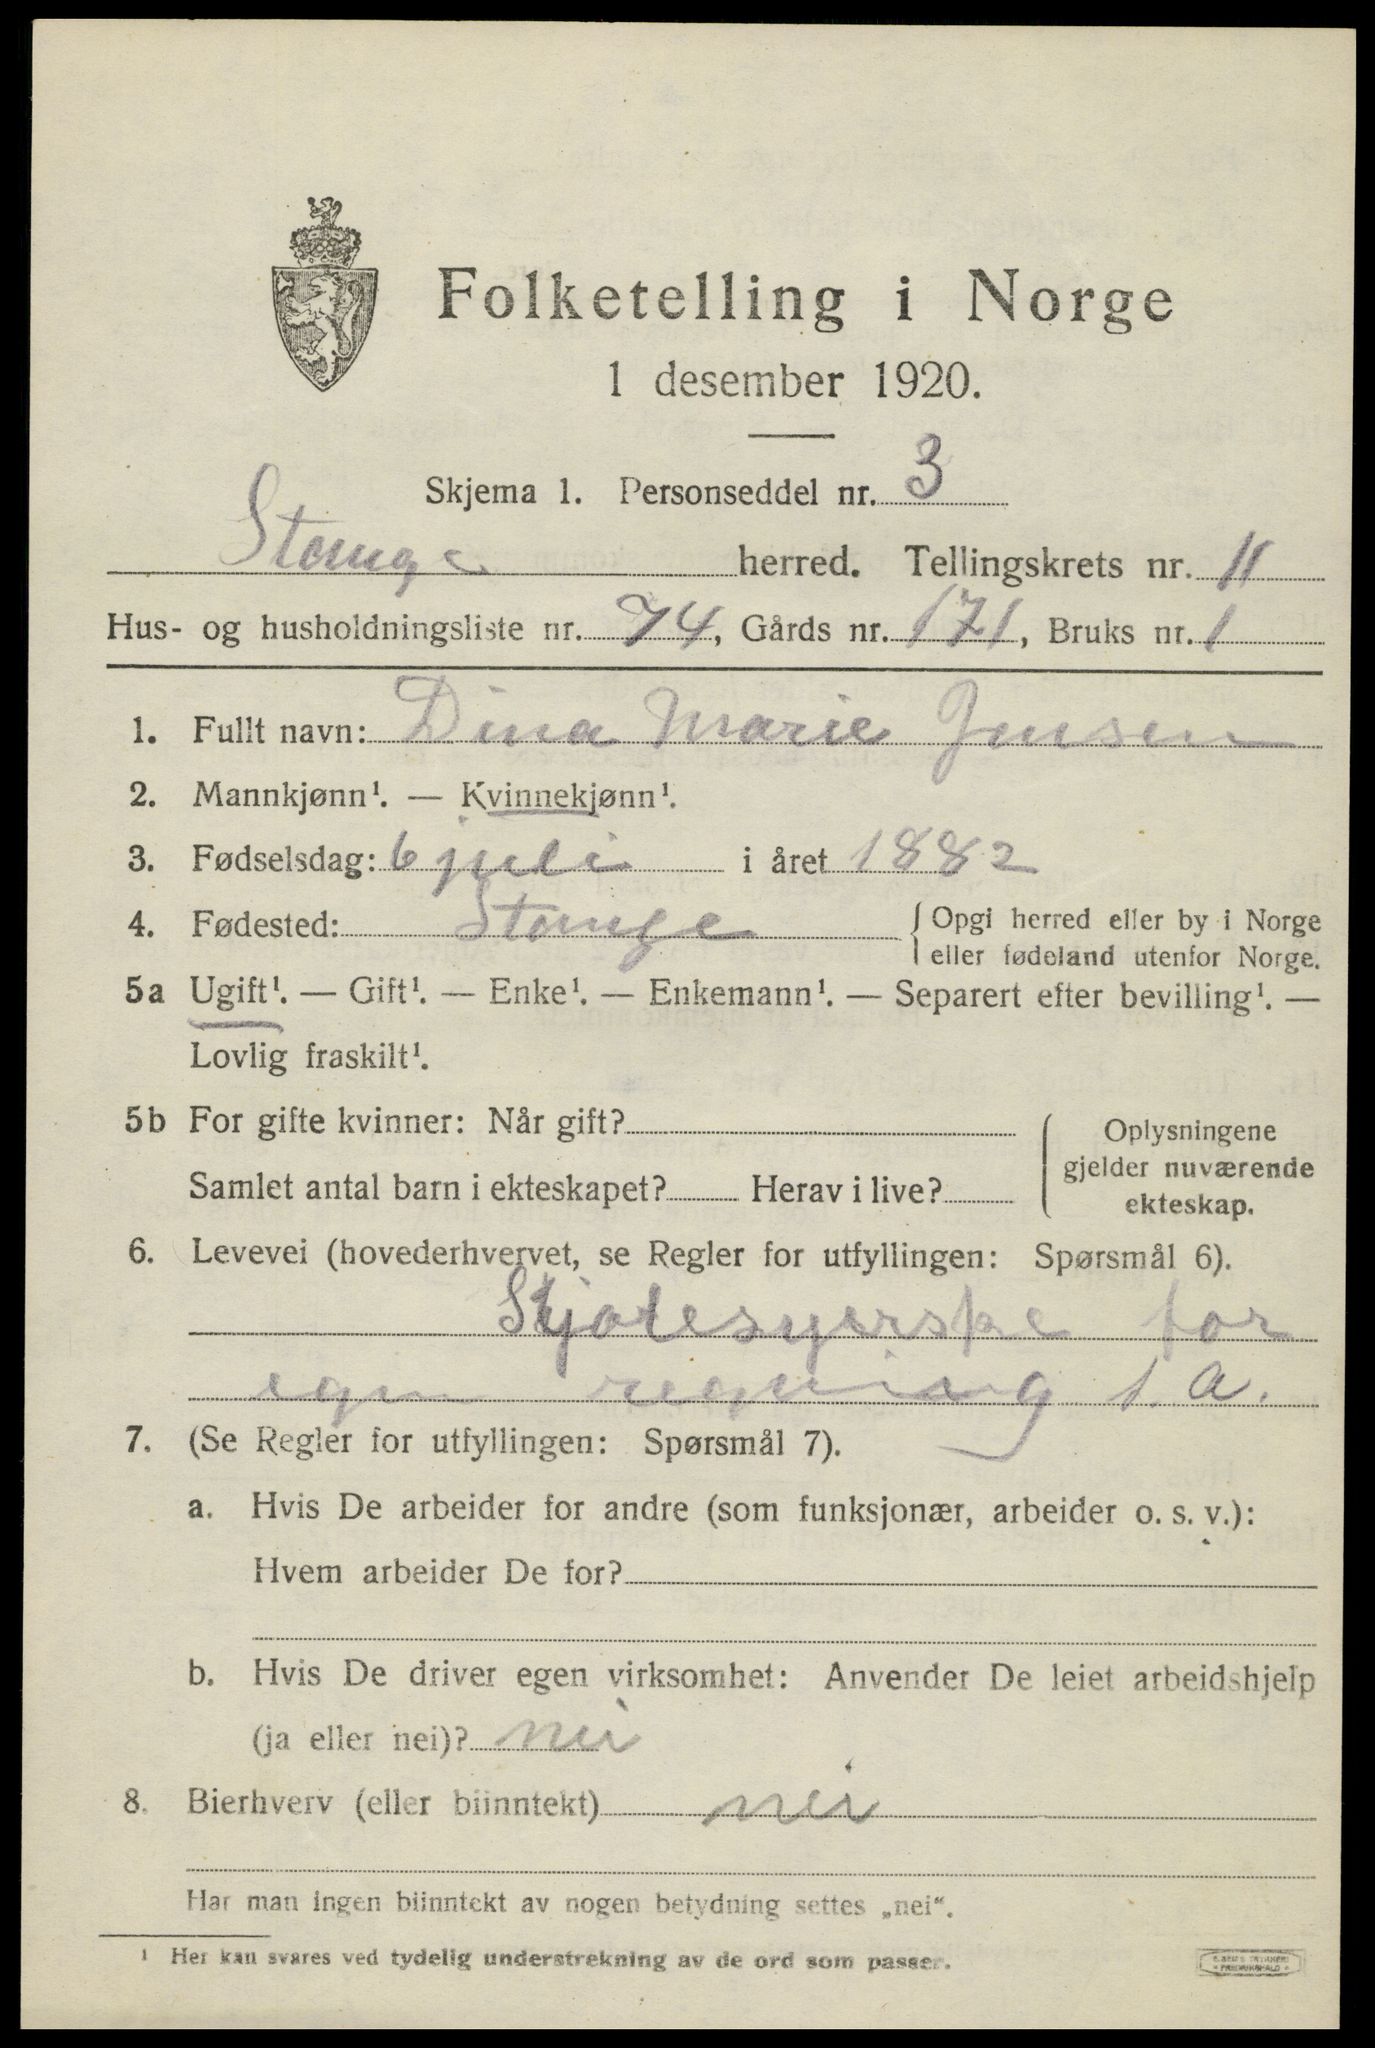 Folketelling i Norge
1 desember 1920.
Skjema 1. Personseddel nr. 3
Stange herred. Tellingskrets nr. 11
Hus- og husholdningsliste nr. 74, Gårds nr. 171, Bruks nr. 1
1. Fullt navn: Dina Marie Jensen
2. Mannkjønn¹. — Kvinnekjønn¹.
3. Fødselsdag: 6 juli i året 1882
4. Fødested: Stange { Opgi herred eller by i Norge
eller fødeland utenfor Norge.
5a Ugift¹. — Gift¹. — Enke¹. — Enkemann¹. — Separert efter bevilling¹. —
Lovlig fraskilt¹.
5b For gifte kvinner: Når gift?
Samlet antal barn i ekteskapet? Herav i live?
Oplysningene
gjelder nuværende
ekteskap.
6. Levevei (hovederhvervet, se Regler for utfyllingen: Spørsmål 6).
Kjolesyerske for
egen regning
7. (Se Regler for utfyllingen: Spørsmål 7).
a. Hvis De arbeider for andre (som funksjonær, arbeider o. s. v.):
Hvem arbeider De for?
b. Hvis De driver egen virksomhet: Anvender De leiet arbeidshjelp
(ja eller nei)? nei
8. Bierhverv (eller biinntekt) nei
Har man ingen biinntekt av nogen betydning settes „nei“.
¹ Her kan svares ved tydelig understrekning av de ord som passer.